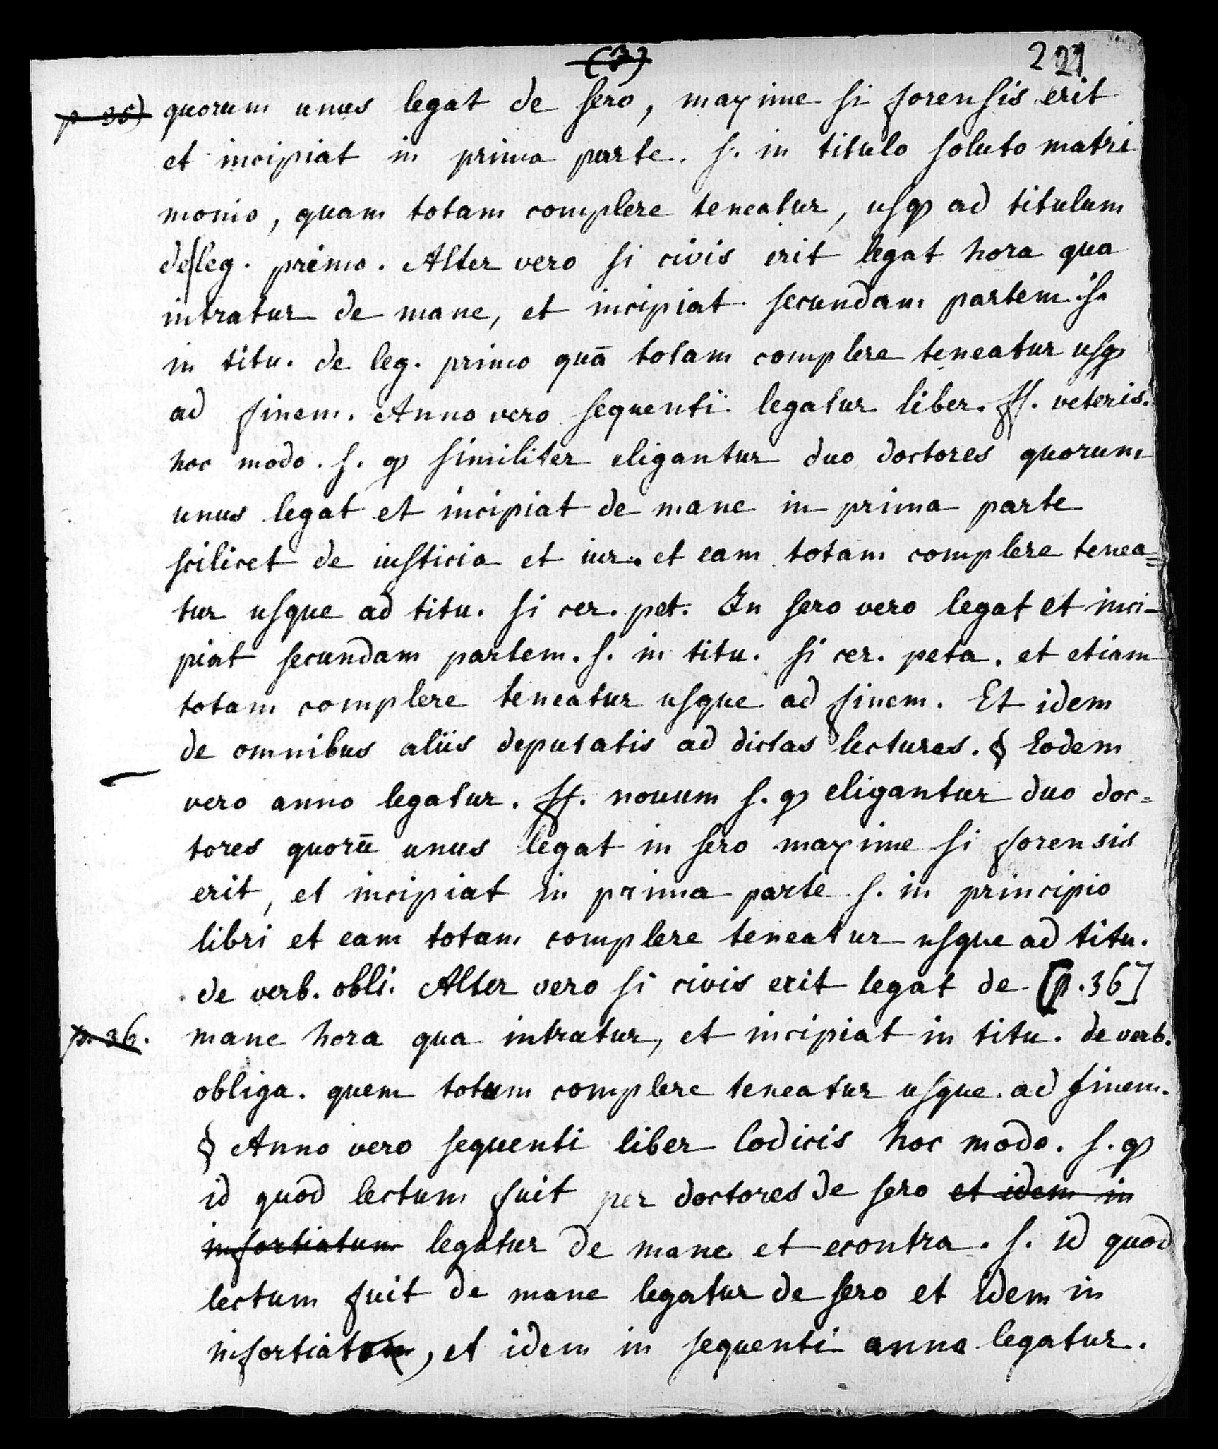 (3)
221
p 35) quorum unus legat de sero, maxime si forensis erit
et incipiat in prima parte. s. in titulo soluto matri
monio, quam totam complere teneatur, usqȝ ad titulum
de leg. primo. Alter vero si civis erit legat hora qua
intratur de mane, et incipiat secundam partem. s.
in titu. de leg. primo quā totam complere teneatur usqȝ
ad finem. Anno vero sequenti legatur liber. ff. veteris.
hoc modo. s. qȝ similiter eligantur duo doctores quorum
unus legat et incipiat de mane in prima parte
scilicet de iusticia et iur. et eam totam complere tenea=
tur usque ad titu. si cer. pet. In sero vero legat et inci-
piat secundam partem. s. in titu. si cer. peta. et etiam
totam complere teneatur usque ad finem. Et idem
de omnibus aliis deputatis ad dictas lecturas. § Eodem
vero anno legatur. ff. nouum s. qȝ eligantur duo doc=
tores quorū unus legat in sero maxime si forensis
erit, et incipiat in prima parte s. in principio
libri et eam totam complere teneatur usque ad titu.
de verb. obli. Alter vero si civis erit legat de [p.36]
p. 36. mane hora qua intratur, et incipiat in titu. de verb.
obliga. quem totum complere teneatur usque ad finem.
§ Anno vero sequenti liber Codicis hoc modo. s. qȝ
id quod lectum fuit per doctores de sero et idem in
infortiatum legatur de mane et econtra. s. id quod
lectum fuit de mane legatur de sero et idem in
infortiato, et idem in sequenti anno legatur.